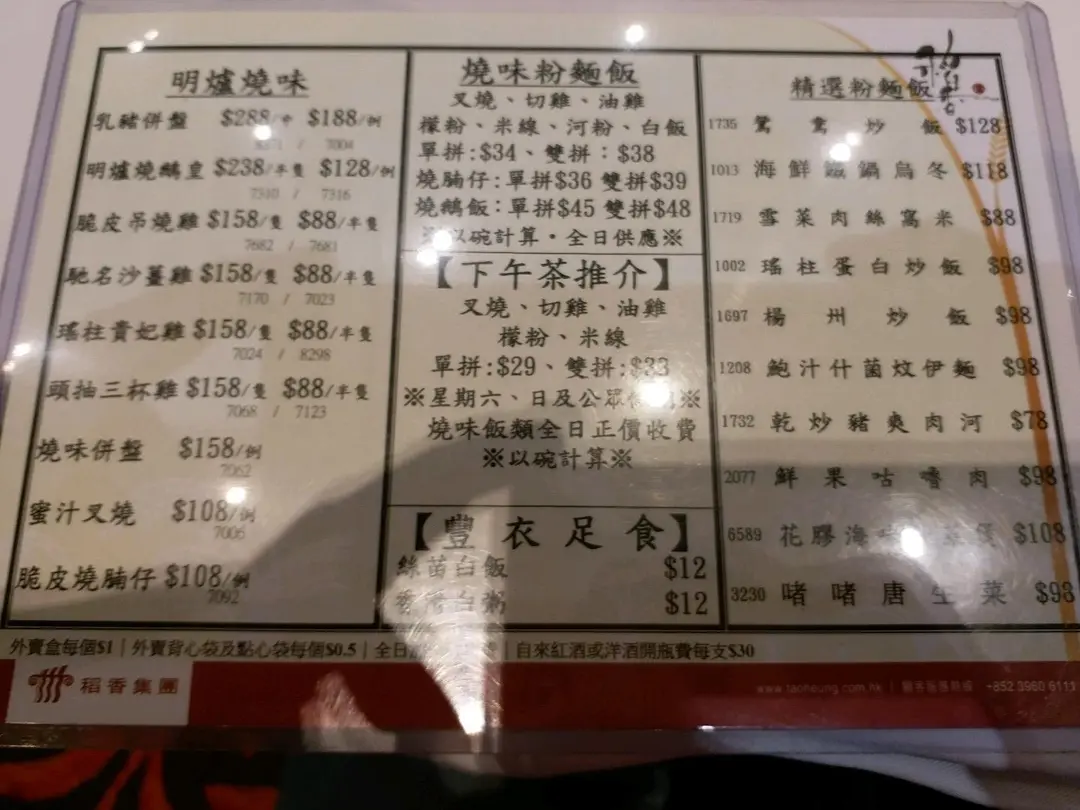 明爐燒味
乳豬併盤 $288/中 $188/例
7004
明爐燒鵝皇 $238/半隻 $128/例
7310 / 7316
脆皮吊燒雞 $158/隻 $88/半隻
7682 / 7681
馳名沙薑雞 $158/隻 $88/半隻
7170 / 7023
瑤柱貴妃雞 $158/隻 $88/半隻
7024 / 8298
頭抽三杯雞 $158/隻 $88/半隻
7068 / 7123
燒味併盤 $158/例
7062
蜜汁叉燒 $108/例
7006
脆皮燒腩仔 $108/例
7092
燒味粉麵飯
叉燒、切雞、油雞
檬粉、米線、河粉、白飯
單拼:$34、雙拼:$38
燒腩仔:單拼$36 雙拼$39
燒鵝飯:單拼$45 雙拼$48
※以碗計算·全日供應※
【下午茶推介】
叉燒、切雞、油雞
檬粉、米線
單拼:$29、雙拼:$33
※星期六、日及公眾※
燒味飯類全日正價收費
※以碗計算※
【豐衣足食】
絲苗白飯 $12
香滑白粥 $12
精選粉麵飯
1735 鴛鴦炒飯 $128
1013 海鮮鍋烏冬 $118
1719 雪菜肉絲窩米 $88
1002 瑤柱蛋白炒飯 $98
1697 楊州炒飯 $98
1208 鮑汁什菌炆伊麵 $98
1732 乾炒豬爽肉河 $78
2077 鮮果咕嚕肉 $98
6589 花膠海 $108
3230 啫啫唐生菜 $98
外賣盒每個$1 | 外賣背心袋及點心袋每個$0.5 | 全日 | 自來紅酒或洋酒開瓶費每支$30
稻香集團
www.taoheung.com.hk | 顧客服務熱線 +852 3960 6111